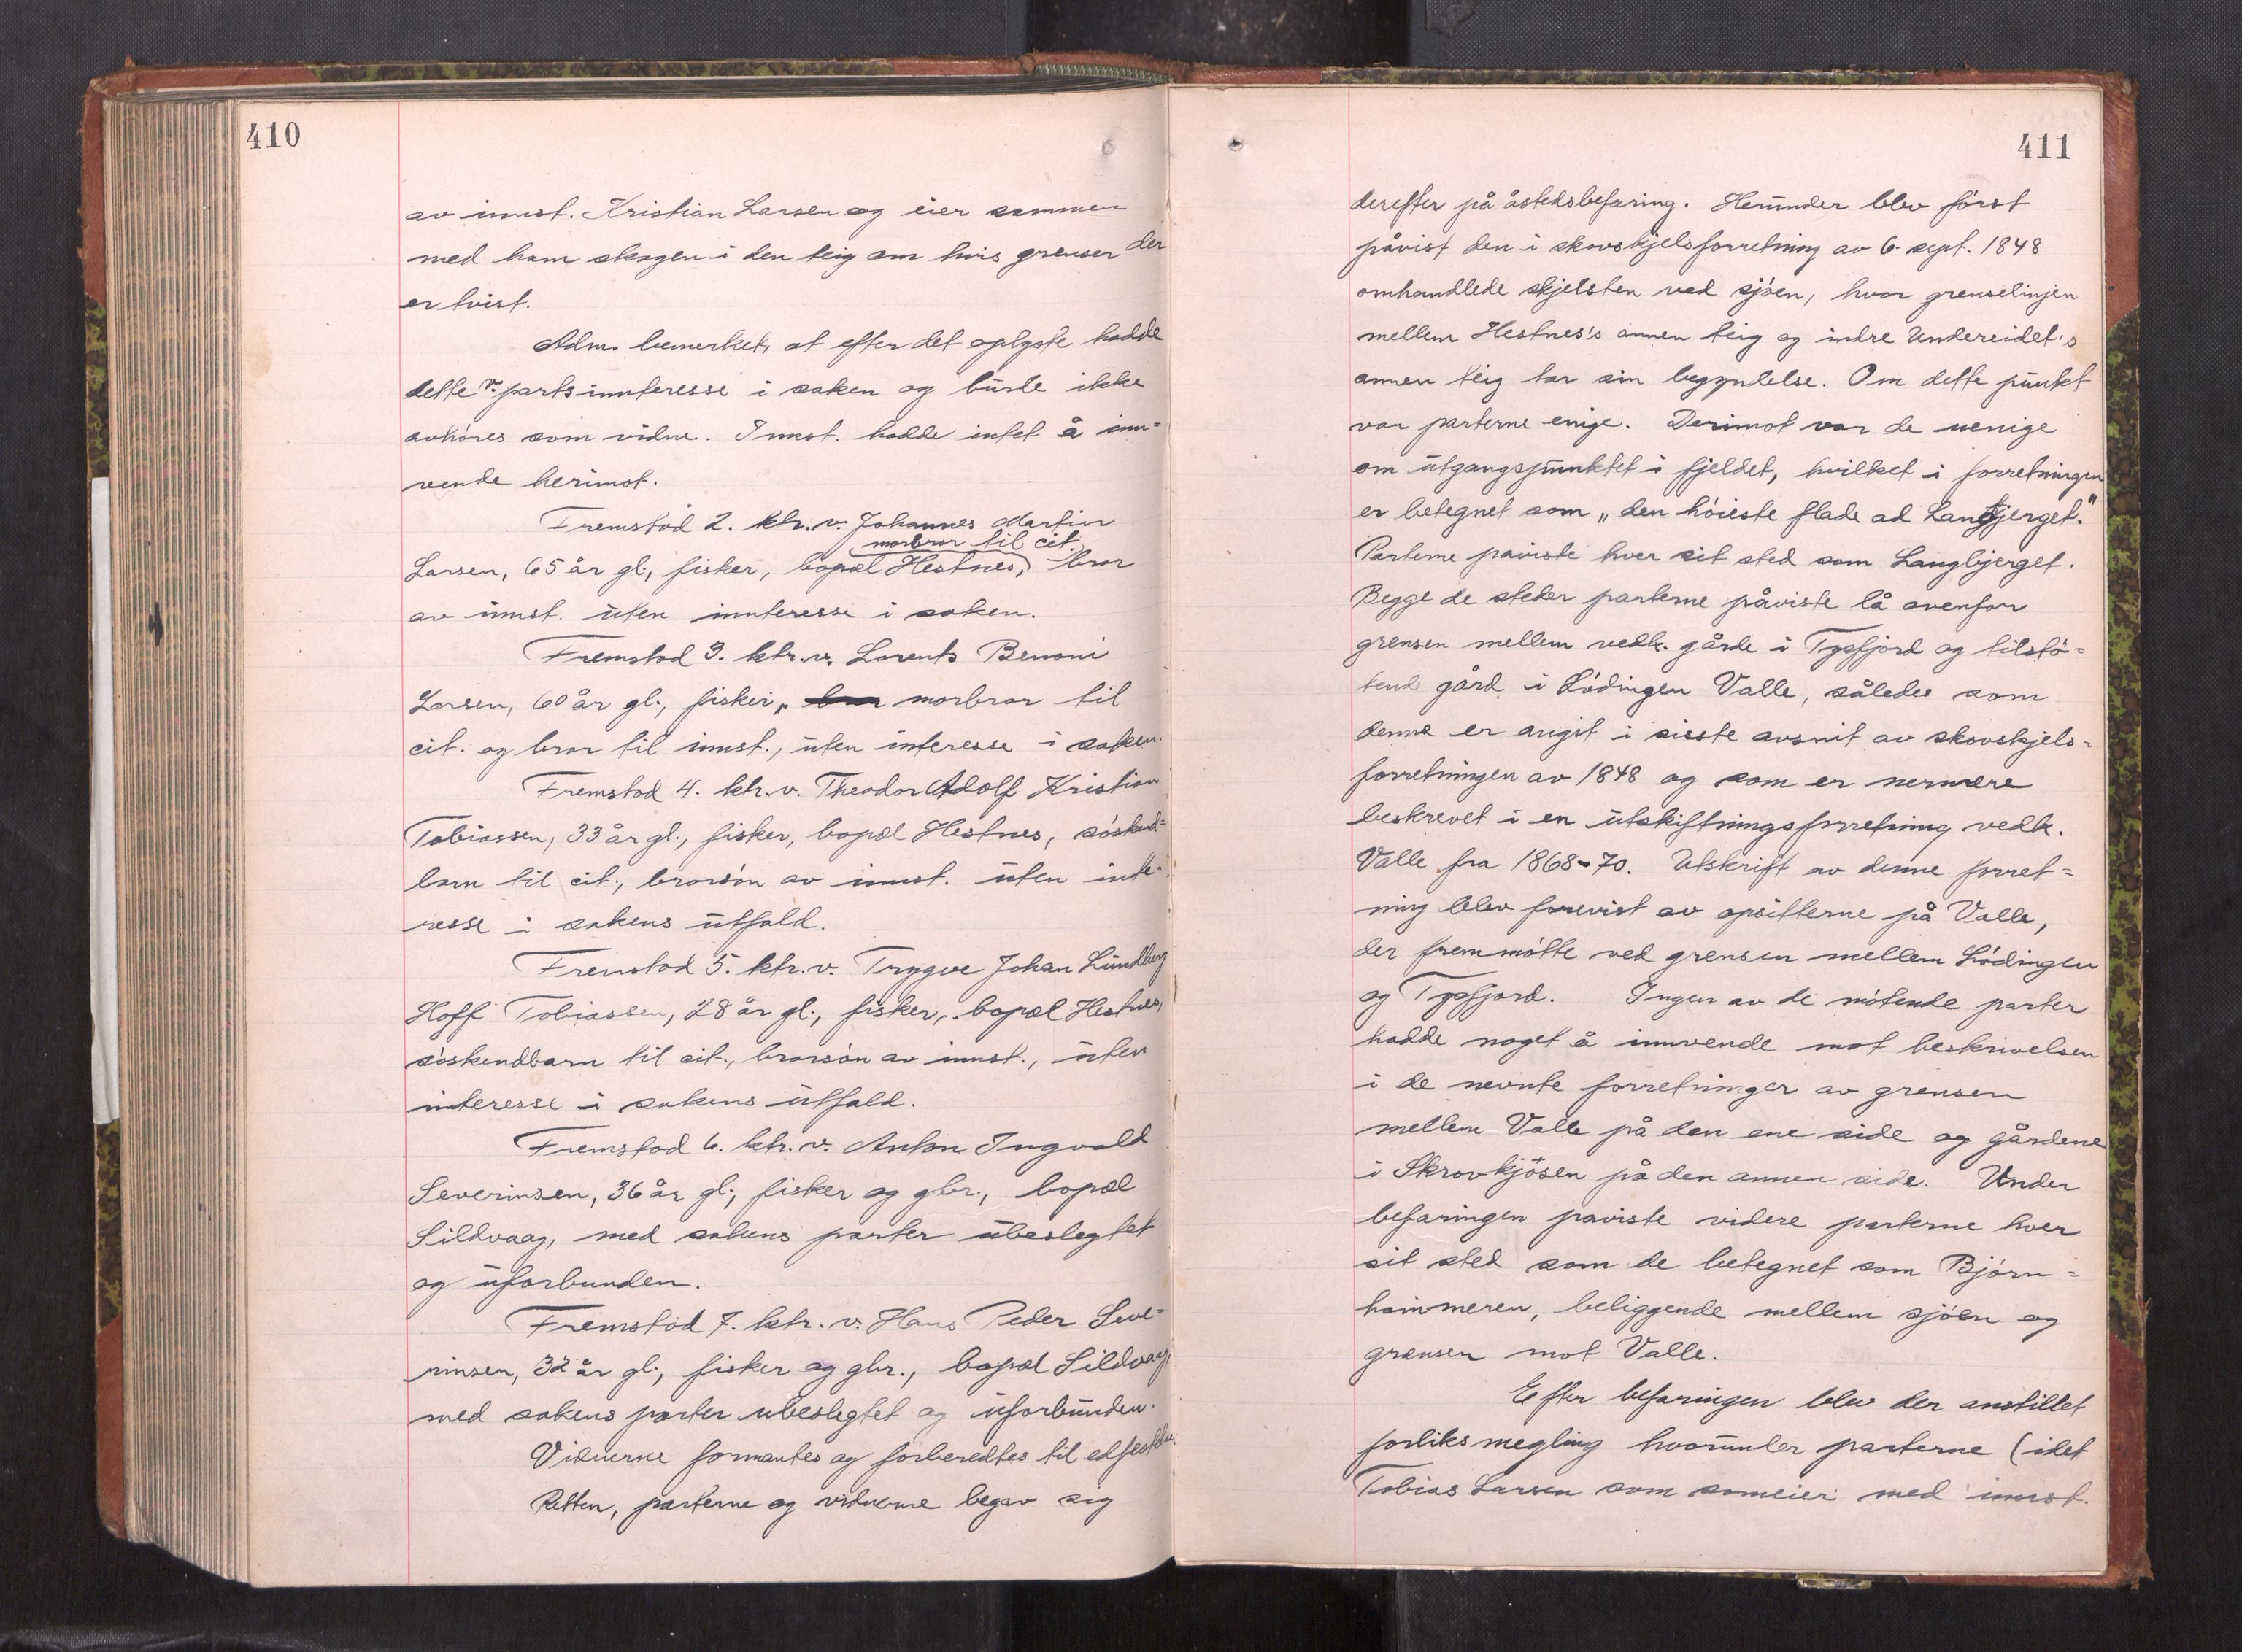 410
av innst. Kristian Larsen og eier sammen
med ham skogen i den teig om hvis grenser der
er tvist.
Adm. bemerket, at efter det oplyste hadde
dette v. partsinnteresse i saken og burde ikke
avhøres som vidne. Innst. hadde intet å inn-
vende herimot.
Fremstod 2. ktr. v. Johannes Martin
morbror til cit.
Larsen, 65 år gl., fisker, bopæl Hestnes, bror
av innst. uten innteresse i saken.
Fremstod 3. ktr. v. Lorents Benoni
Larsen, 60 år gl., fisker, morbror til
cit. og bror til innst., uten interesse i saken.
Fremstod 4. ktr. v. Theodor Adolf Kristian
Tobiassen, 33 år gl., fisker, bopæl Hestnes, søskend-
barn til cit., brorsøn av innst. uten inte-
resse i sakens utfald.
Fremstod 5. ktr. v. Trygve Johan Lundberg
Hoff Tobiassen, 28 år gl., fisker, bopæl Hestnes,
søskendbarn til cit., brorsøn av innst., uten
interesse i sakens utfald.
Fremstod 6. ktr. v. Anton Ingvald
Severinsen, 36 år gl., fisker og gbr., bopæl
Sildvaag, med sakens parter ubeslegtet
og uforbunden.
Fremstod 7. ktr. v. Hans Peder Seve-
rinsen, 32 år gl., fisker og gbr., bopæl Sildvaag
med sakens parter ubeslegtet og uforbunden.
Vidnerne formantes og forberedtes til edfestelse
Retten, parterne og vidnerne begav sig
411
derefter på åstedsbefaring. Herunder blev først
påvist den i skovskjelsforretning av 6. sept. 1848
omhandlede skjelsten ved sjøen, hvor grenselinjen
mellem Hestnes's annen teig og indre Undereidet's
annen teig tar sin begyndelse. Om dette punkt
var parterne enige. Derimot var de uenige
om utgangspunktet i fjeldet, hvilket i forretningen
er betegnet som „den høieste flade ad Langbjerget."
Parterne påviste hver sit sted som Langbjerget.
Begge de steder parterne påviste lå ovenfor
grensen mellem vedk. gårde i Tysfjord og tilstø-
tende gård i Lødingen Valle, således som
denne er angit i sisste avsnit av skovskjels-
forretningen av 1848 og som er nermere
beskrevet i en utskiftningsforretning vedk.
Valle fra 1868-70. Utskrift av denne forret-
ning blev forevist av opsitterne på Valle,
der fremmøtte ved grensen mellem Lødingen
og Tysfjord. Ingen av de møtende parter
hadde noget å innvende mot beskrivelsen
i de nevnte forretninger av grensen
mellem Valle på den ene side og gårdene
i Skrovkjøsen på den annen side. Under
befaringen påviste videre parterne hver
sit sted som de betegnet som Bjørn-
hammeren, beliggende mellem sjøen og
grensen mot Valle.
Efter befaringen blev der anstillet
forliksmegling hvorunder parterne (idet
Tobias Larsen som sameier med innst.